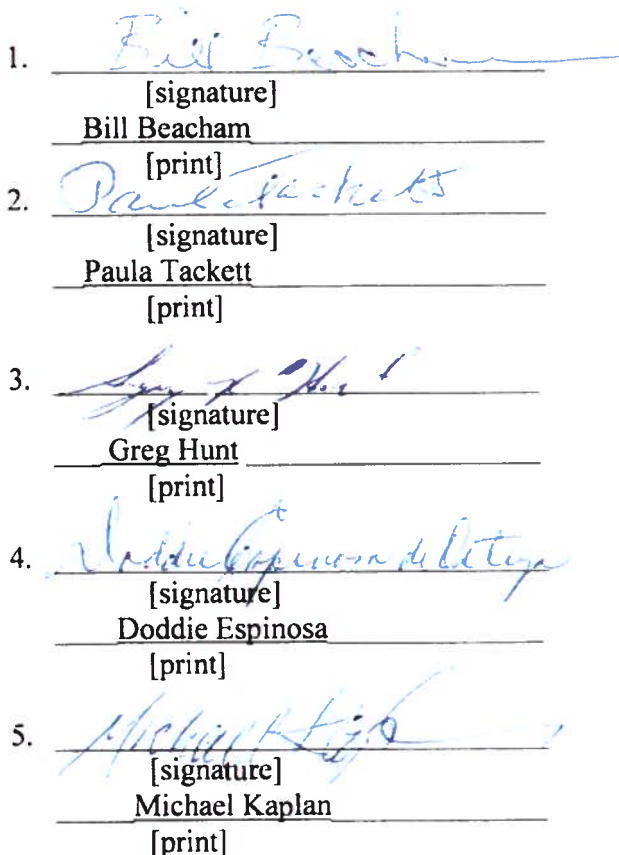 1. Bill Beacham
[signature]
Bill Beacham
[print]
2. Paula Tackett
[signature]
Paula Tackett
[print]
3.
[signature]
Greg Hunt
[print]
4. Doddie Espinosa de
[signature]
Doddie Espinosa
[print]
5. Michael
[signature]
Michael Kaplan
[print]